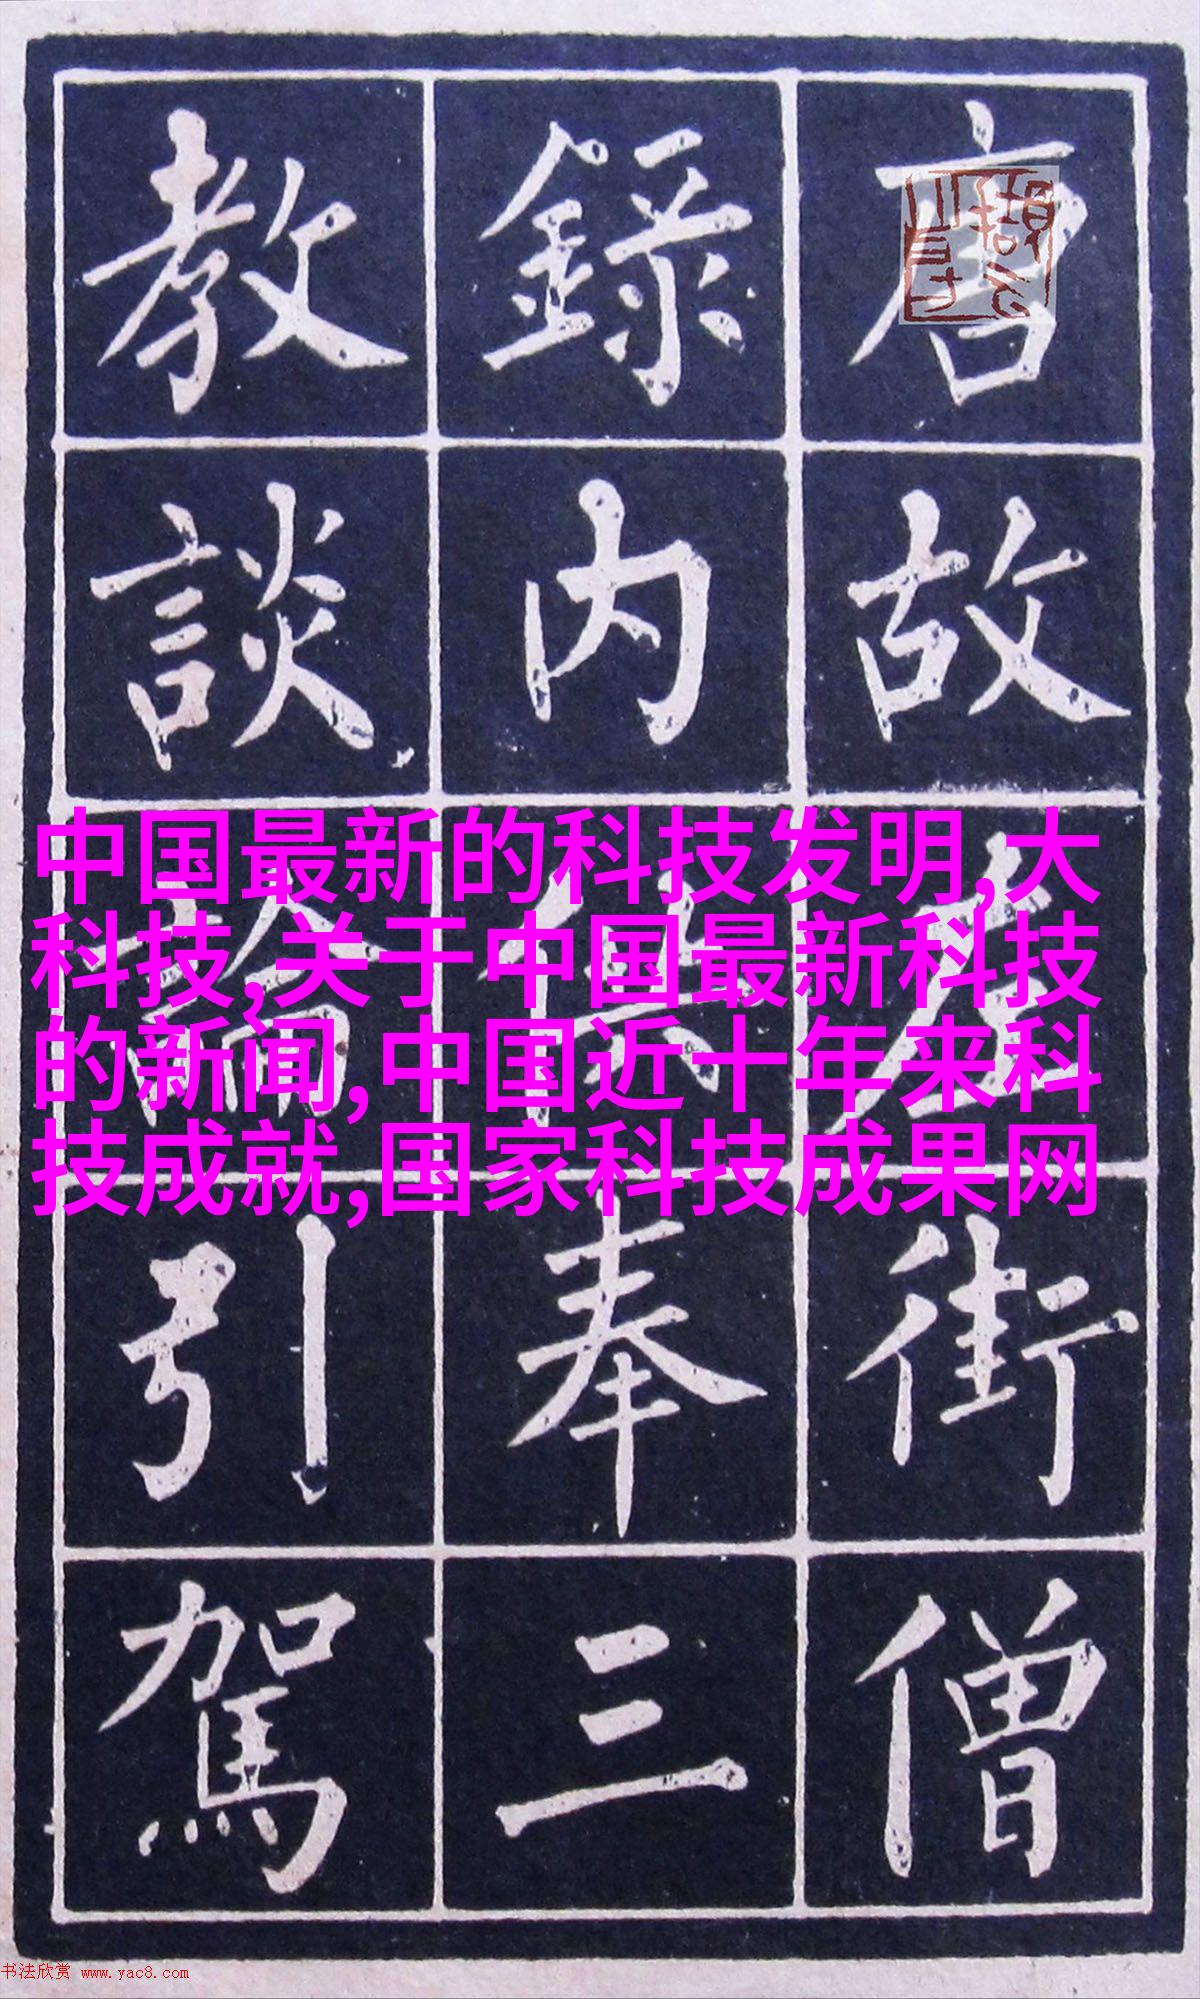 唐故左街僧
錄內供奉三
教談論引駕
中国最新的科技发明,大
科技,关于中国最新科技
的新闻,中国近十年来科
技成就,国家科技成果网
书法欣赏 www.yac8.com